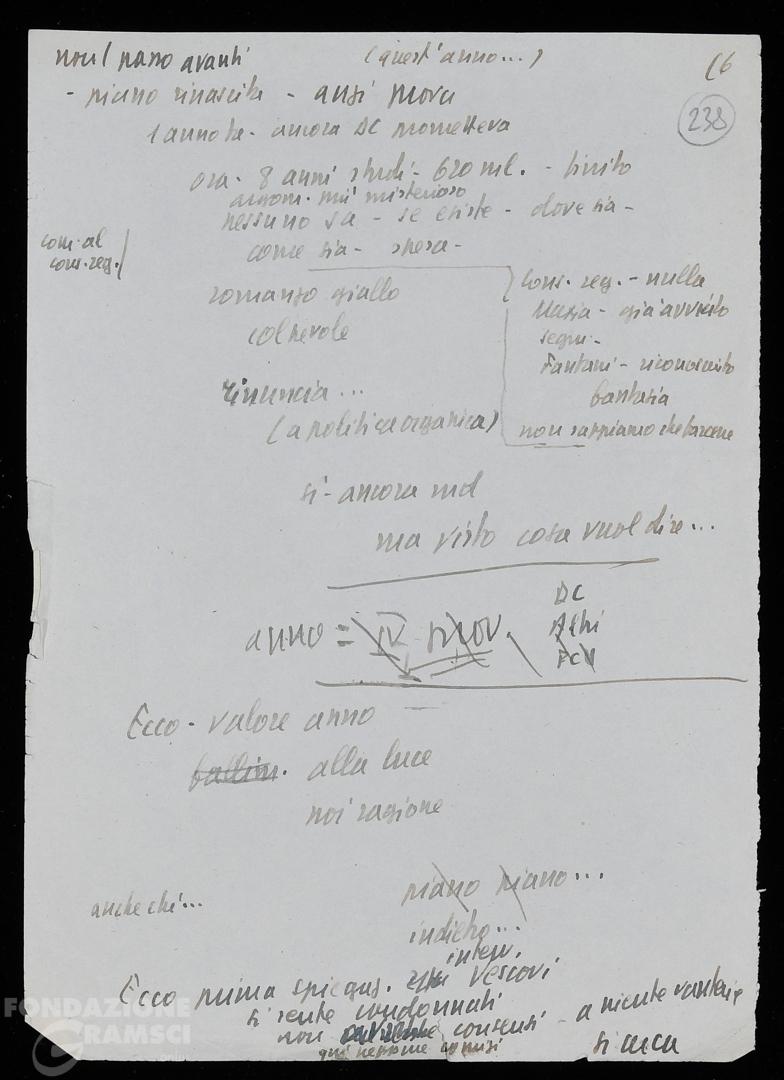 non 1 passo avanti (quest'anno...) 16
238
- piano rinascita - anzi prova
1 anno fa - ancora DC prometteva
ora - 8 anni studi - 620 ml. - finito
argom. più misterioso
nessuno sa - se esiste - dove sia -
come sia - spesa -
com. al
cons. reg.
romanzo giallo
colpevole
cons. reg. - nulla
già avvisto
segni -
Fanfani - riconosciuto
fantasia
non sappiamo che farcene
rinuncia...
(a politica organica)
si - ancora md
ma visto cosa vuol dire...
anno = IV
DC
Altri
PCI
Ecco - valore anno
fallim. alla luce
noi ragione
anche chi...
piano piano...
indietro...
interv.
Ecco prima spiegaz. vescovi
si sente condannati
non consensi - a niente vanterie
qui nessune
si cerca
FONDAZIONE
GRAMSCI